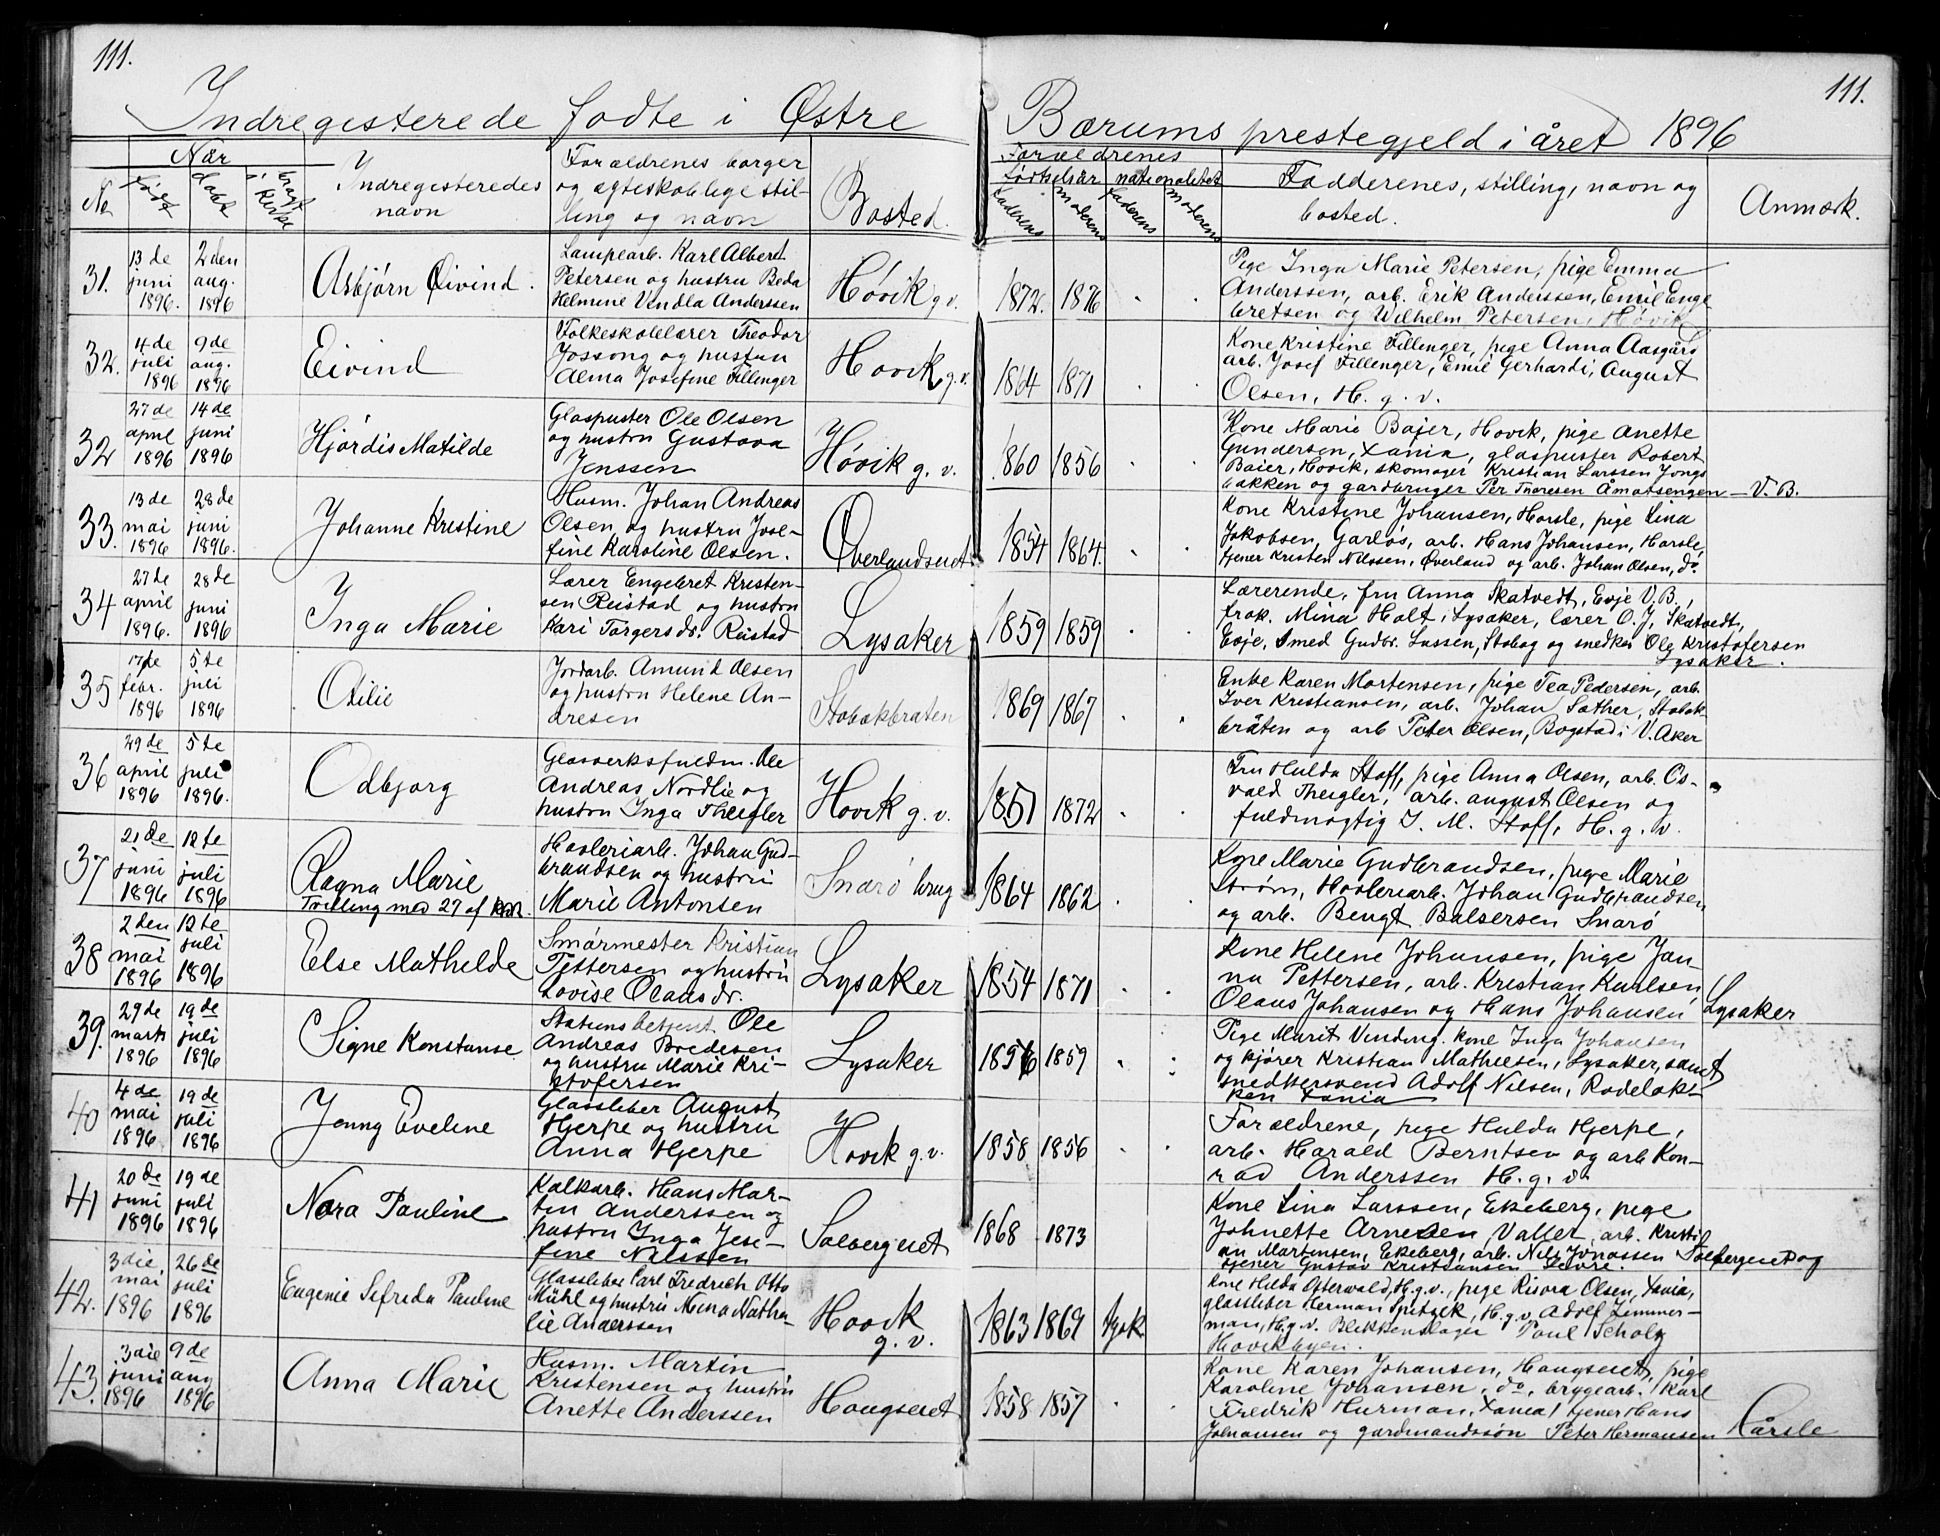 111.
111.
Indregisterede fødte i Østre
Bærums prestegjeld i året 1896
No
Når
født
døbt
bragt i kirke
Indregisteredes navn
Forældrenes borger
og ægteskablige stil-
ling og navn
Bosted.
Forældrenes
fødselsår nationalitet
Faderens moderens faderens moderens
Fadderenes, stilling, navn og
bosted.
Anmærk.
31. 13de juni 1896. 2den aug. 1896
Asbjørn Øivind.
Lampearb. Karl Albert
Petersen og hustru Beda
Helmine Vendla Anderssen
Høvik g.v.
1872. 1876
Pige Inga Marie Petersen, pige Emma
Anderssen, arb. Erik Anderssen, Emil Enge
bretsen og Wilhelm Petersen, Høvik
32. 4de juli 1896 9de aug. 1896
Eivind
Folkeskolelærer Theodor
Jossong og hustru
Alma Josefine Fillinger
Høvik g.v.
1864 1871
Kone Kristine Fillenger, pige Anna Aasgård
arb. Josef Fillenger, Emil Gerhardi, August
Olsen, H. g. v.
32 27de april 1896 14de juni 1896
Hjørdis Matilde
Glaspuster Ole Olsen
og hustru Gustava
Jenssen
Høvik g. v.
1860 1856
Kone Marie Bajer, Høvik, pige Anette
Gundersen, Xania, glaspuster Robert
Baier, Høvik, skomager Kristian Larssen Jongs
bakken og gardbruger Per Thoresen Åmotsengen – V. B.
33. 13de mai 1896 28de juni 1896.
Johanne Kristine
Husm. Johan Andreas
Olsen og hustru Jose-
fine Karoline Olsen.
Øverlandseiet
1854 1864.
Kone Kristine Johansen, Horsle, pige Lina
Jakobsen, Garløs, arb. Hans Johansen, Harsle,
tjener Kristen Nilssen, Øverland og arb. Johan Olsen, do.
34 27de april 1896. 28de juni 1896
Inga Marie
Lærer Engebret Kristen-
sen Reistad og hustru
Kari Torgersdr. Reistad
Lysaker
1859 1859
Lærerende, fru Anna Skatvedt, Evje V.B.,
frøk. Mina Holt, Lysaker, lærer O. J. Skatvedt,
Evje, Smed Gudbr. Lassen, Stabæg og snedker Ole Kristofersen
Lysaker.
35 17de febr. 1896 5te juli 1896
Otilie
Jordarb. Amund Olsen
og hustru Helene An-
dresen
Stabækbråten
1869 1867
Enke Karen Mortensen, pige Tea Pedersen, arb.
Iver Kristiansen, arb. Johan Sæther, Stabæk-
bråten og arb Peter Olsen, Bogstad i V. Aker
36 29de april 1896 5te juli 1896.
Odbjørg
Glasverksfuldm. Ole
Andreas Nordlie og
hustru Inga Theigler
Høvik g. v.
1851 1872
Fru Hulda Stoff, pige Anna Olsen, arb. Os-
vald Theigler, arb. august Olsen og
fuldmægtig J. M. Stoff, H. g. v.
37 21de juni 1896 12te juli 1896
Ragna Marie
Tvilling med 27 af kbk.
Høvleriarb. Johan Gud-
brandsen og hustru
Marie Antonsen
Snarø brug
1864 1862
Kone Marie Gudbrandsen, pige Marie
Strøm, Høvleriarb. Johan Gudbrandsen
og arb. Bengt Balsersen Snarø
38 2den mai 1896 12te juli 1896
Else Mathilde
Smørmester Kristian
Pettersen og hustru
Lovise Olausdr.
Lysaker
1854 1871
Kone Helene Johansen, pige Jan-
na Pettersen, arb. Kristian Karlsen
Olaus Johansen og Hans Johansen Lysaker
39. 29de marts 1896 19de juli 1896
Signe Konstanse
Stationsbetjent Ole
Andreas Bredesen
og hustru Marie Kri-
stofersen
Lysaker
1856 1859
Pige Marit Vinding, kone Inga Johansen
og kjører Kristian Mathiesen, Lysaker, samt
snedkersvend Adolf Nilsen, Rodeløk-
ken Xania
40 4de mai 1896 19de juli 1896
Jenny Eveline
Glassleber August
Hjerpe og hustru
Anna Hjerpe
Høvik g.v.
1858 1856
Forældrene, pige Hulda Hjerpe,
arb. Harald Berntsen og arb Kon-
rad Anderssen H. g. v.
41 20de juni 1896 19de juli 1896
Nora Pauline
Kalkarb. Hans Mar-
tin Anderssen og
hustru Inga Jose-
fine Nilssen
Solbergeiet
1868 1873
Kone Lina Larssen, Ekeberg, pige
Johnette Arnesen Valler, arb. Kristi
an Martensen, Ekeberg, arb. Nils Jonassen Solbergeiet og
tjener Gustav Kristiansen Levre.
42. 3die mai 1896 26de juli 1896
Eugenie Sefreda Pauline
Glassleber Carl Fredrich Otto
Mühl og hustru Nena Natha-
lie Anderssen
Høvik
g. v.
1863 1869 tysk
Kone Hilda Osterwald, H.g.v., pige Risora Olsen, Xania,
glassleber Herman Spitzek, H.g.v. Adolf Zimmer-
man, H.g.v. Blikkenslager Paul Scholz
Høvikbyen.
43. 3die juni 1896 9de aug 1896
Anna Marie
Husm. Martin
Kristensen og hustru
Anette Anderssen
Haugseiet
1858 1857
Kone Karen Johansen, Haugseiet, pige
Karoline Johansen, do, brygearb. Karl
Fredrik Hurman, Xania, tjener Hans
Johansen og gardmandssøn Peter Hermansen Hårsle